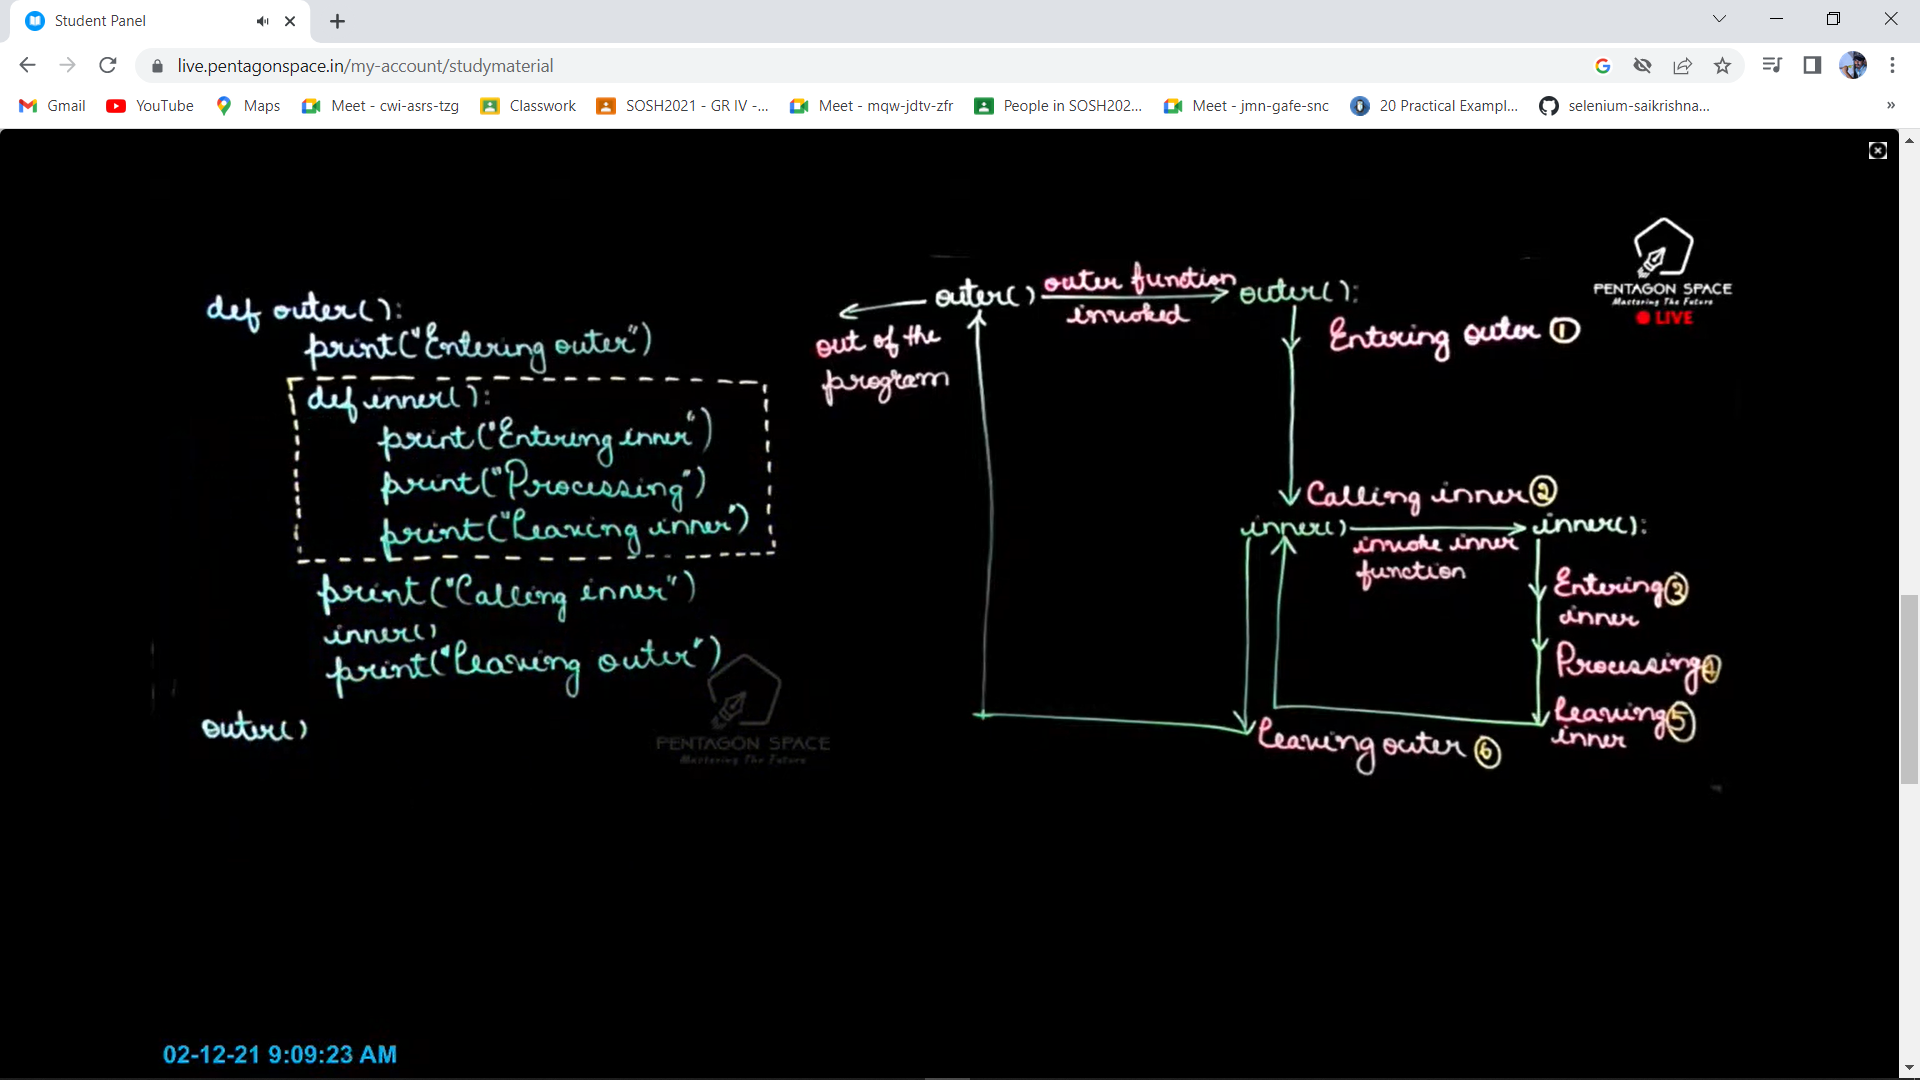 Student Panel
live.pentagonspace.in/my-account/studymaterial
Gmail YouTube Maps Meet - cwi-asrs-tzg Classwork SOSH2021 - GR IV -... Meet - mqw-jdtv-zfr People in SOSH202... Meet - jmn-gafe-snc 20 Practical Exampl... selenium-saikrishna... »
def outer():
print("Entering outer")
def inner():
print("Entering inner")
print("Processing")
print("Leaving inner")
print("Calling inner")
inner()
print("Leaving outer")
outer()
outer() outer function outer():
invoked
out of the
program
Entering outer 1
Calling inner 2
inner() inner():
invoke inner
function
Entering 3
inner
Processing 4
Leaving 5
inner
Leaving outer 6
PENTAGON SPACE
Mastering The Future
LIVE
PENTAGON SPACE
Mastering The Future
02-12-21 9:09:23 AM